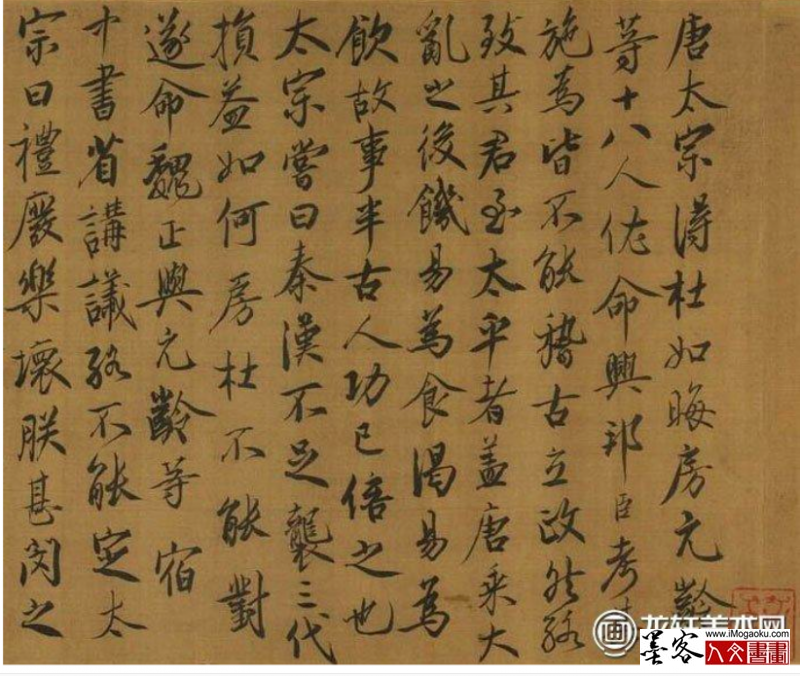 唐太宗得杜如晦房元齡
等十八人佐命興邦臣考
施為皆不能稽古立政然終
致其君至太平者盖唐乘大
亂之後饑易為食渴易為
飲故事半古人功已倍之也
太宗嘗曰秦漢不足襲三代
損益如何房杜不能對
遂命魏正與元齡等宿
中書省講議終不能定太
宗曰禮廢樂壞朕甚閔之
画 龙轩美术网
www.iMogaoku.com
墨客人文書畫